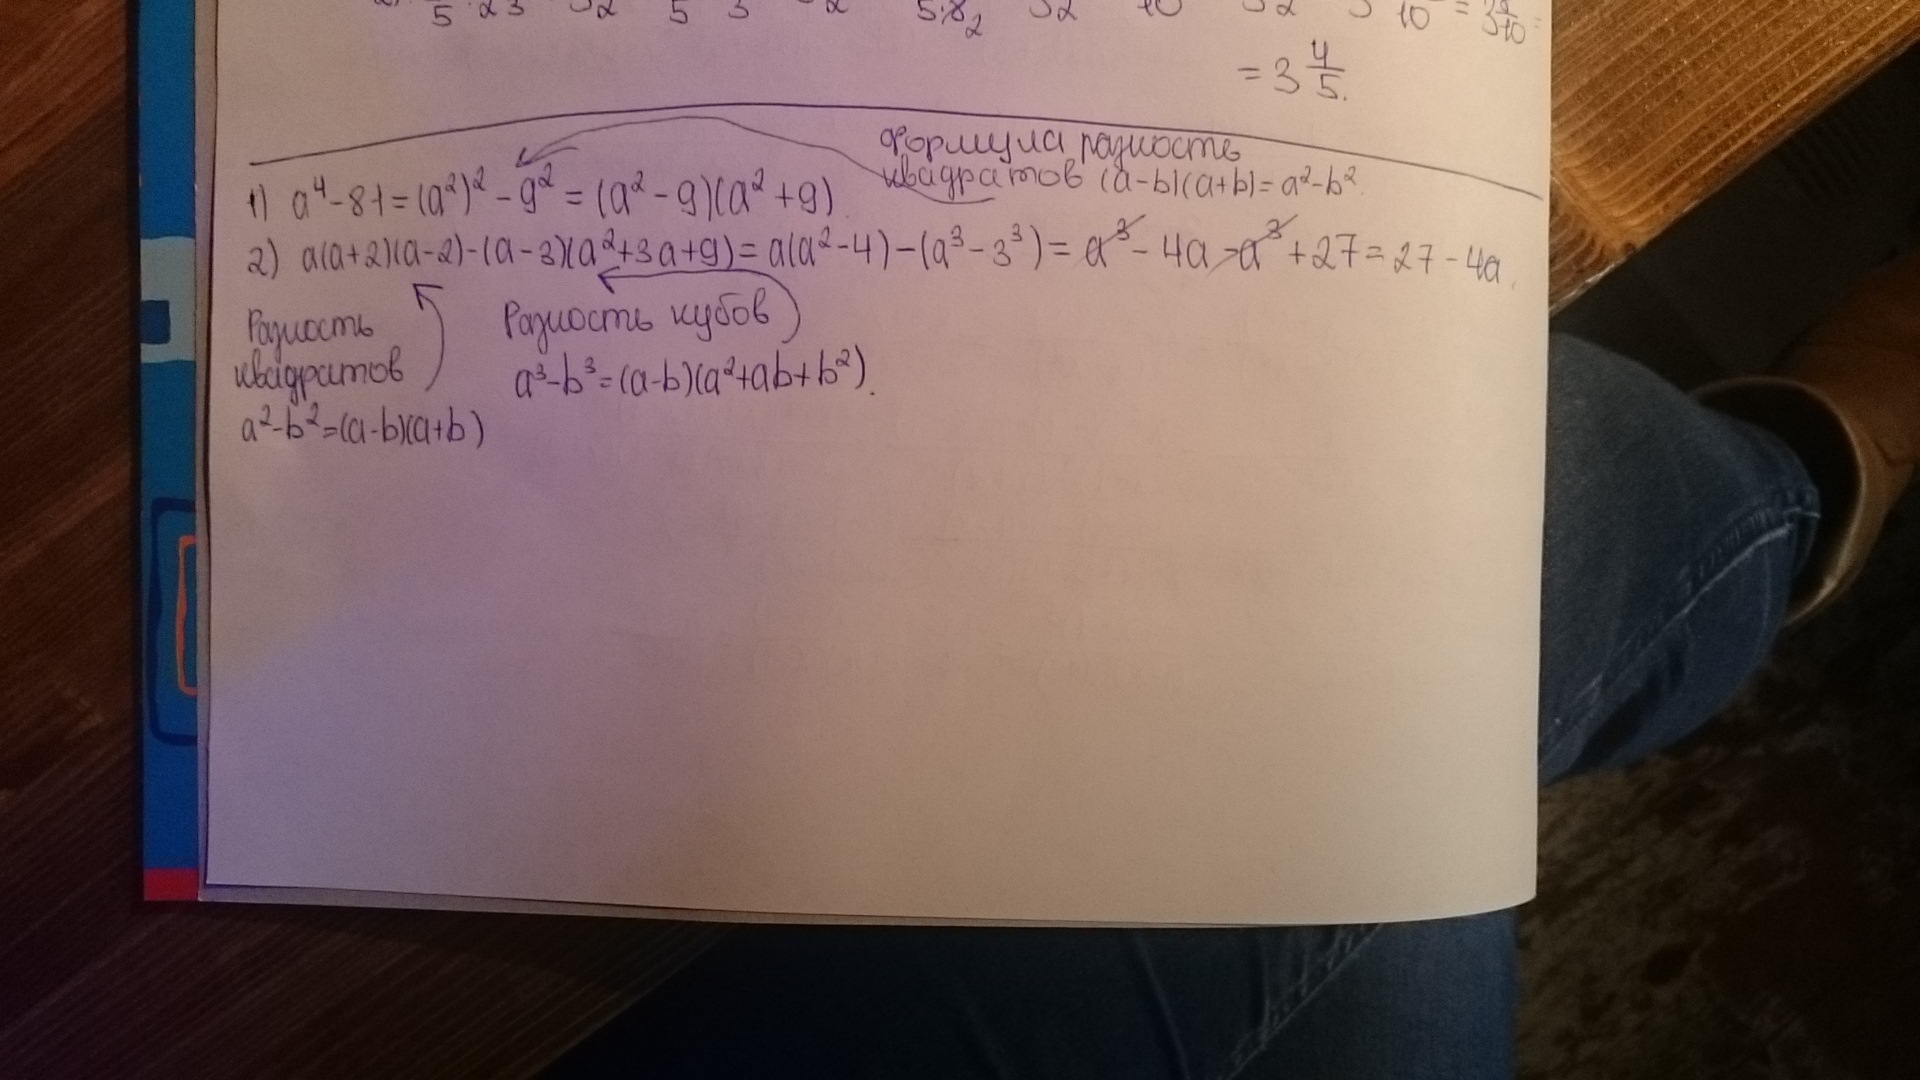 = 3 4/5.
Формула разность
квадратов (a-b)(a+b)=a²-b².
1) a⁴-81=(a²)²-9²=(a²-9)(a²+9)
2) a(a+2)(a-2)-(a-3)(a²+3a+9)=a(a²-4)-(a³-3³)=a³-4a-a³+27=27-4a.
Разность
квадратов
a²-b²=(a-b)(a+b)
Разность кубов
a³-b³=(a-b)(a²+ab+b²).